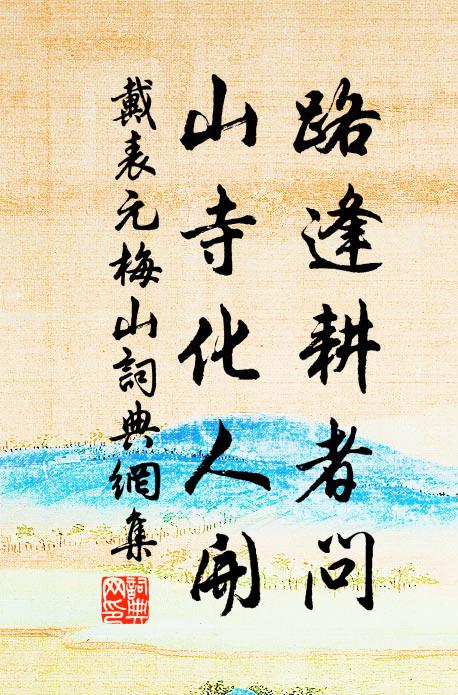 路逢耕者问
山寺化人开
戴表元梅山詞典網集
詞典